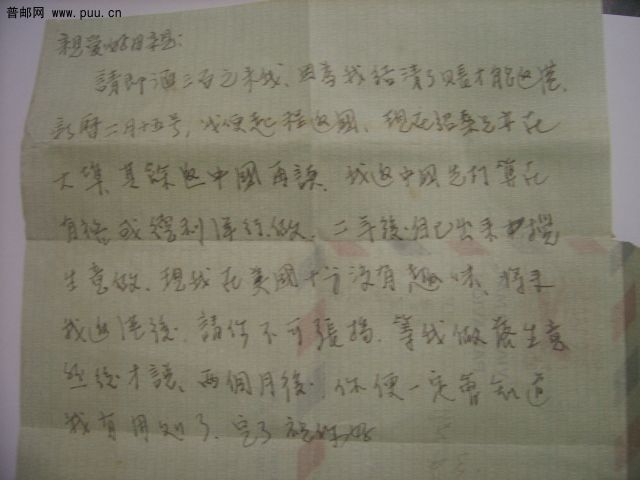 普邮网 www.puu.cn
親愛的母親：
請即滙二百元來我、因為我結清了賬才能返港、
新曆二月十五号，我便起程返國、現在
大埠、其餘返中國再談、我返中國先打算在
有德或得利洋行做、二年後自己出來搵
生意做、現我在美國十分沒有趣味、將來
我返港後、請你不可張揚、等我做落生意
然後才談、兩個月後、你便一定會知道
我有用处了、完了 祝你好